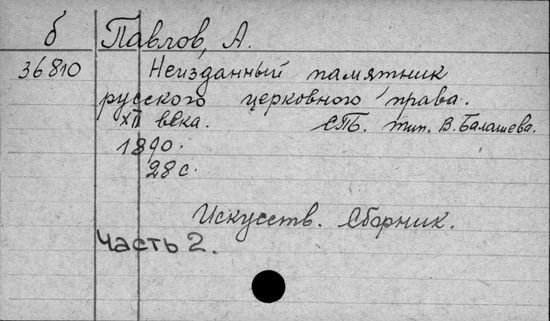 б Павлов, А.
36810 Неизданный памятник
русского церковного права.
XII века. СПб. тип. В. Балашева.
1890.
28 с.
Искусств. Сборник.
Часть 2.